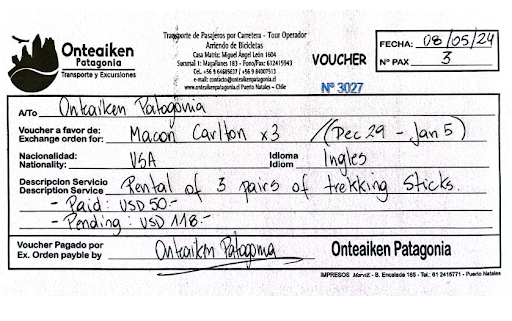 Onteaiken
Patagonia
Transporte y Excursiones
Transporte de Pasajeros por Carretera - Tour Operador
Arriendo de Bicicletas
Casa Matriz: Miguel Ángel León 1604
Sucursal 1: Magallanes 183 - Fono/Fax: 612415943
Cel. +56 9 64685637 / +56 9 84007513
e-mail: contacto@onteaikenpatagonia.cl
www.onteaikenpatagonia.cl Puerto Natales - Chile
VOUCHER
Nº 3027
FECHA: 08/05/24
Nº PAX 3
A/To Onteaiken Patagonia
Voucher a favor de:
Exchange order for: Macon Carlton x3 /(Dec 29 - Jan 5)
Nacionalidad:
Nationality: USA
Idioma
Idiom Ingles
Descripcion Servicio
Description Service Rental of 3 pairs of trekking sticks.
- Paid: USD 50.-
- Pending: USD 118.-
Voucher Pagado por
Ex. Orden payble by Onteaiken Patagonia
Onteaiken Patagonia
IMPRESOS MarviX - B. Encalada 185 - Tel.: 61 2415771 - Puerto Natales